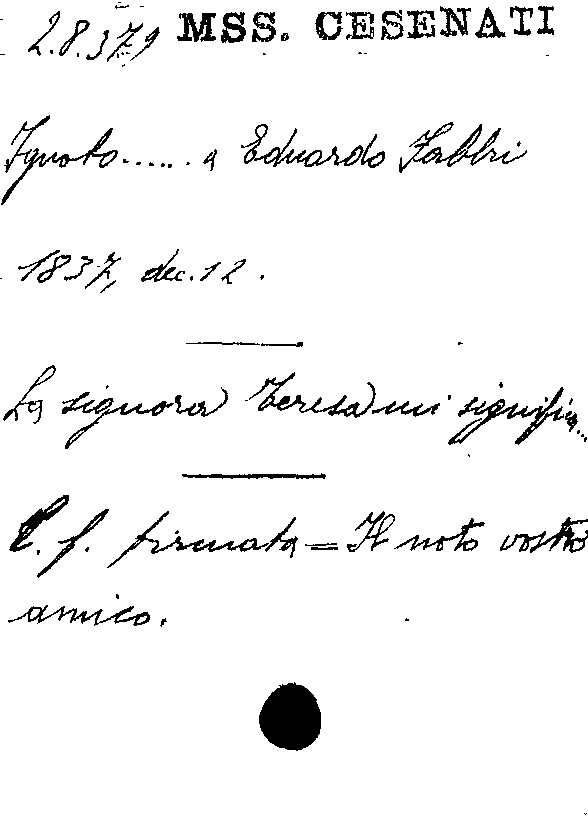 2.8.379 MSS. CESENATI
Ignoto...... a Eduardo Fabbri
1837, dec. 12.
La signora Teresa mi signific...
L. f. firmata = Il noto vostro
amico.